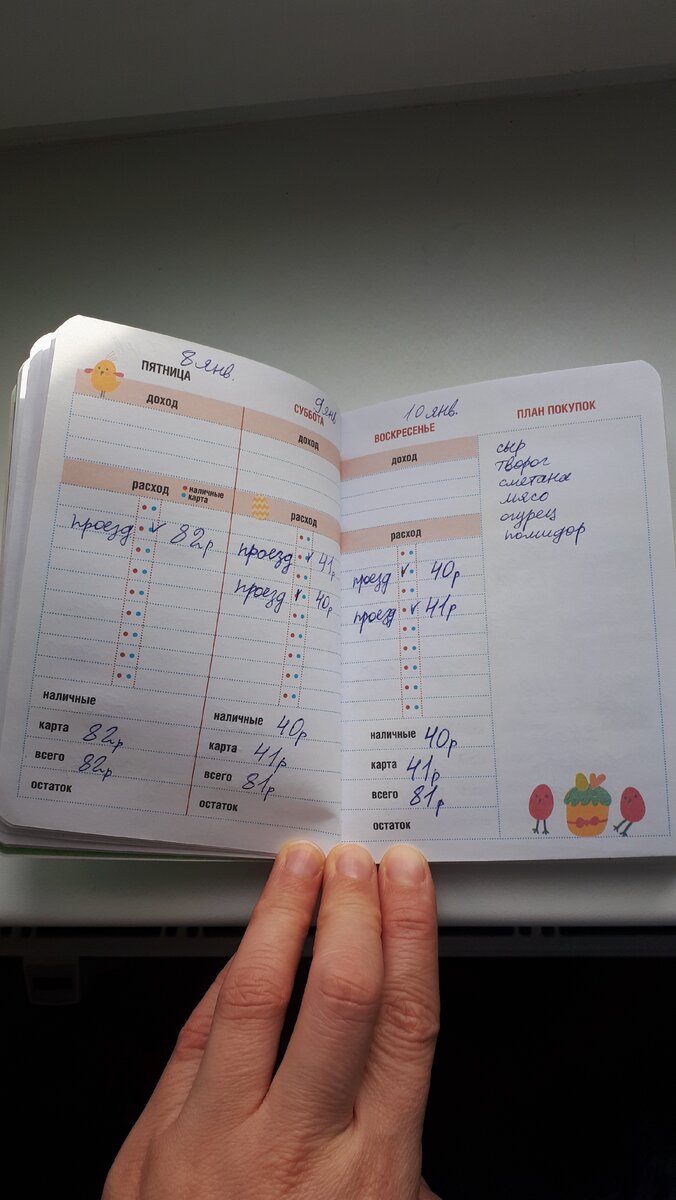 ПЯТНИЦА 8 янв.
доход
расход наличные
карта
проезд 82р
наличные
карта 82р
всего 82р
остаток
9 янв
СУББОТА
доход
расход
проезд 41р
проезд 40р
наличные 40р
карта 41р
всего 81р
остаток
10 янв.
ВОСКРЕСЕНЬЕ
доход
расход
проезд 40р
проезд 41р
наличные 40р
карта 41р
всего 81р
остаток
ПЛАН ПОКУПОК
сыр
творог
сметана
мясо
огурец
помидор